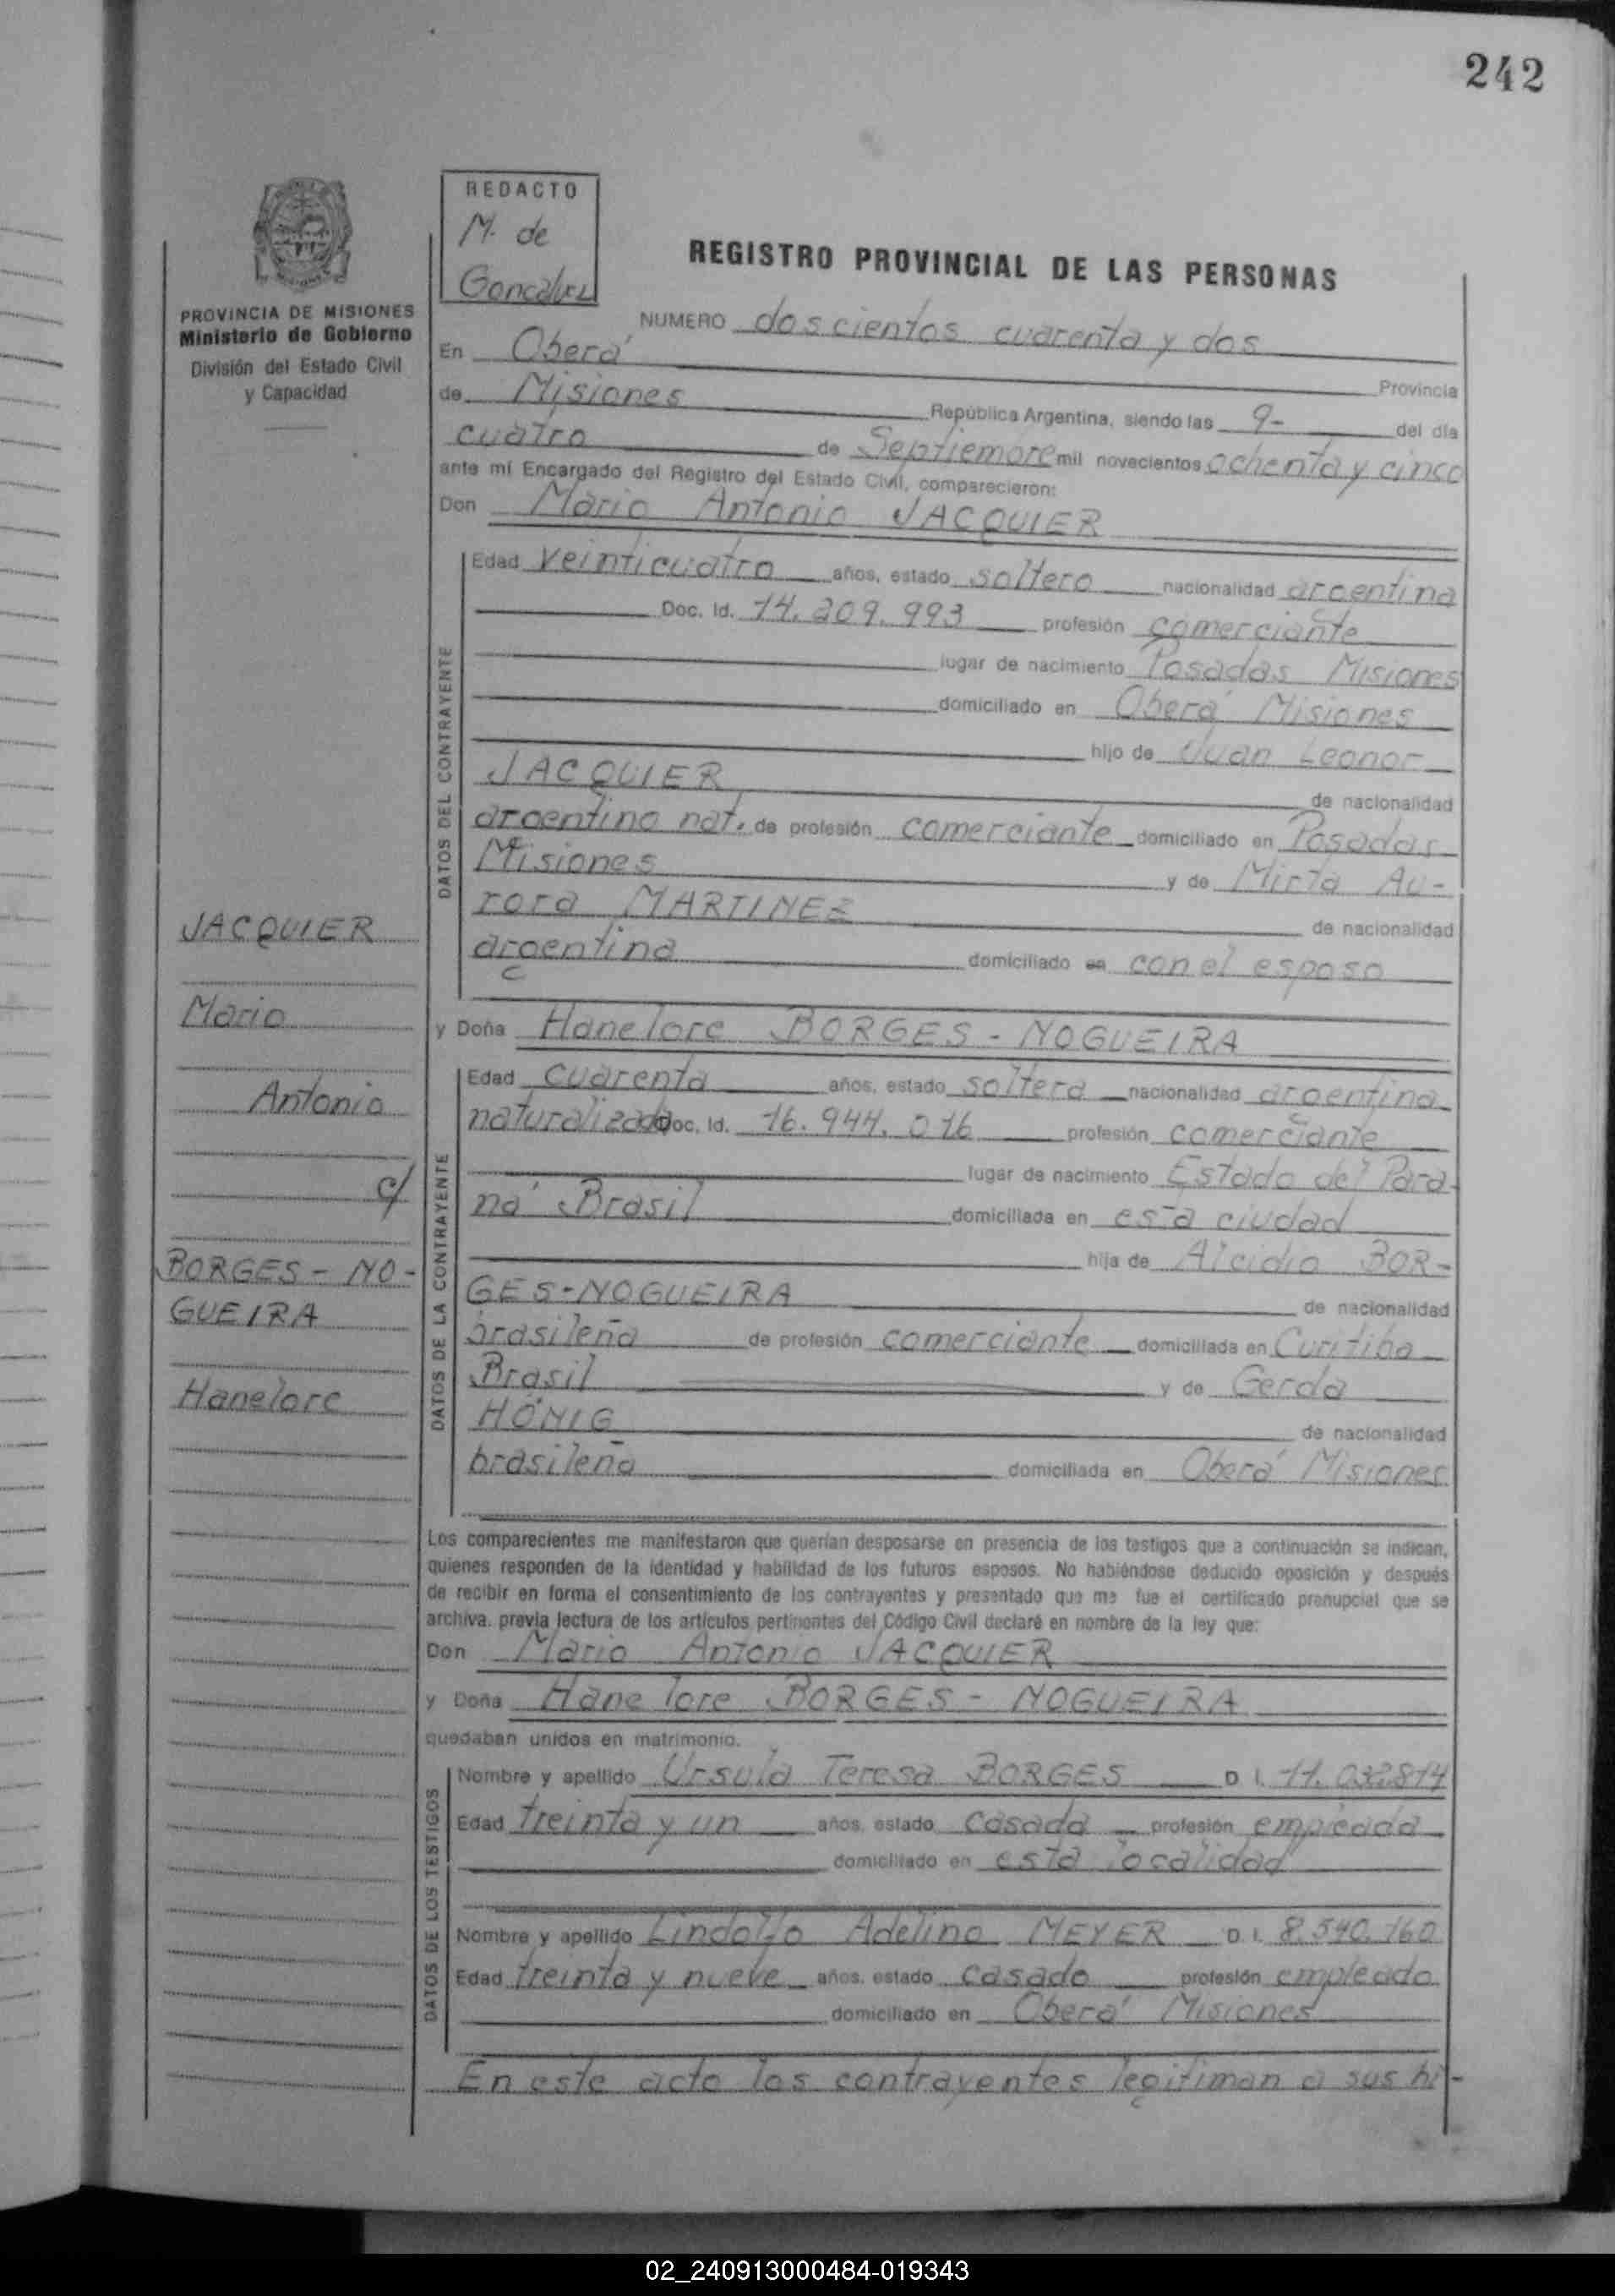 242
REDACTO
M. de
Goncalvez
PROVINCIA DE MISIONES
Ministerio de Gobierno
División del Estado Civil
y Capacidad
REGISTRO PROVINCIAL DE LAS PERSONAS
NUMERO doscientos cuarenta y dos
En Oberá Provincia
de Misiones República Argentina, siendo las 9- del día
cuatro de Septiembre mil novecientos ochenta y cinco
ante mí Encargado del Registro del Estado Civil, comparecieron:
Don Mario Antonio JACQUIER
DATOS DEL CONTRAYENTE
Edad veinticuatro años, estado soltero nacionalidad argentina
Doc. Id. 14.209.993 profesión comerciante
lugar de nacimiento Posadas Misiones
domiciliado en Oberá Misiones
hijo de Juan Leonor
JACQUIER de nacionalidad
argentino nat. de profesión comerciante domiciliado en Posadas
Misiones y de Mirta Au-
rora MARTINEZ de nacionalidad
argentina domiciliado en con el esposo
y Doña Hanelore BORGES - NOGUEIRA
DATOS DE LA CONTRAYENTE
Edad cuarenta años, estado soltera nacionalidad argentina
naturalizada Doc. Id. 16.944.016 profesión comerciante
lugar de nacimiento Estado del Para-
ná Brasil domiciliada en esta ciudad
hija de Alcidio BOR-
GES-NOGUEIRA de nacionalidad
brasileña de profesión comerciante domiciliada en Curitiba
Brasil y de Gerda
HÖNIG de nacionalidad
brasileña domiciliada en Oberá Misiones
JACQUIER
Mario
Antonio
c/
BORGES - NO-
GUEIRA
Hanelore
Los comparecientes me manifestaron que querían desposarse en presencia de los testigos que a continuación se indican,
quienes responden de la identidad y habilidad de los futuros esposos. No habiéndose deducido oposición y después
de recibir en forma el consentimiento de los contrayentes y presentado que me fue el certificado prenupcial que se
archiva, previa lectura de los artículos pertinentes del Código Civil declaré en nombre de la ley que:
Don Mario Antonio JACQUIER
y Doña Hanelore BORGES - NOGUEIRA
quedaban unidos en matrimonio.
DATOS DE LOS TESTIGOS
Nombre y apellido Ursula Teresa BORGES D. I. 11.032.814
Edad treinta y un años, estado casada profesión empleada
domiciliado en esta localidad
Nombre y apellido Lindolfo Adelino MEYER D. I. 8.540.160
Edad treinta y nueve años, estado casado profesión empleado
domiciliado en Oberá Misiones
En este acto los contrayentes legitiman a sus hi-
02_240913000484-019343